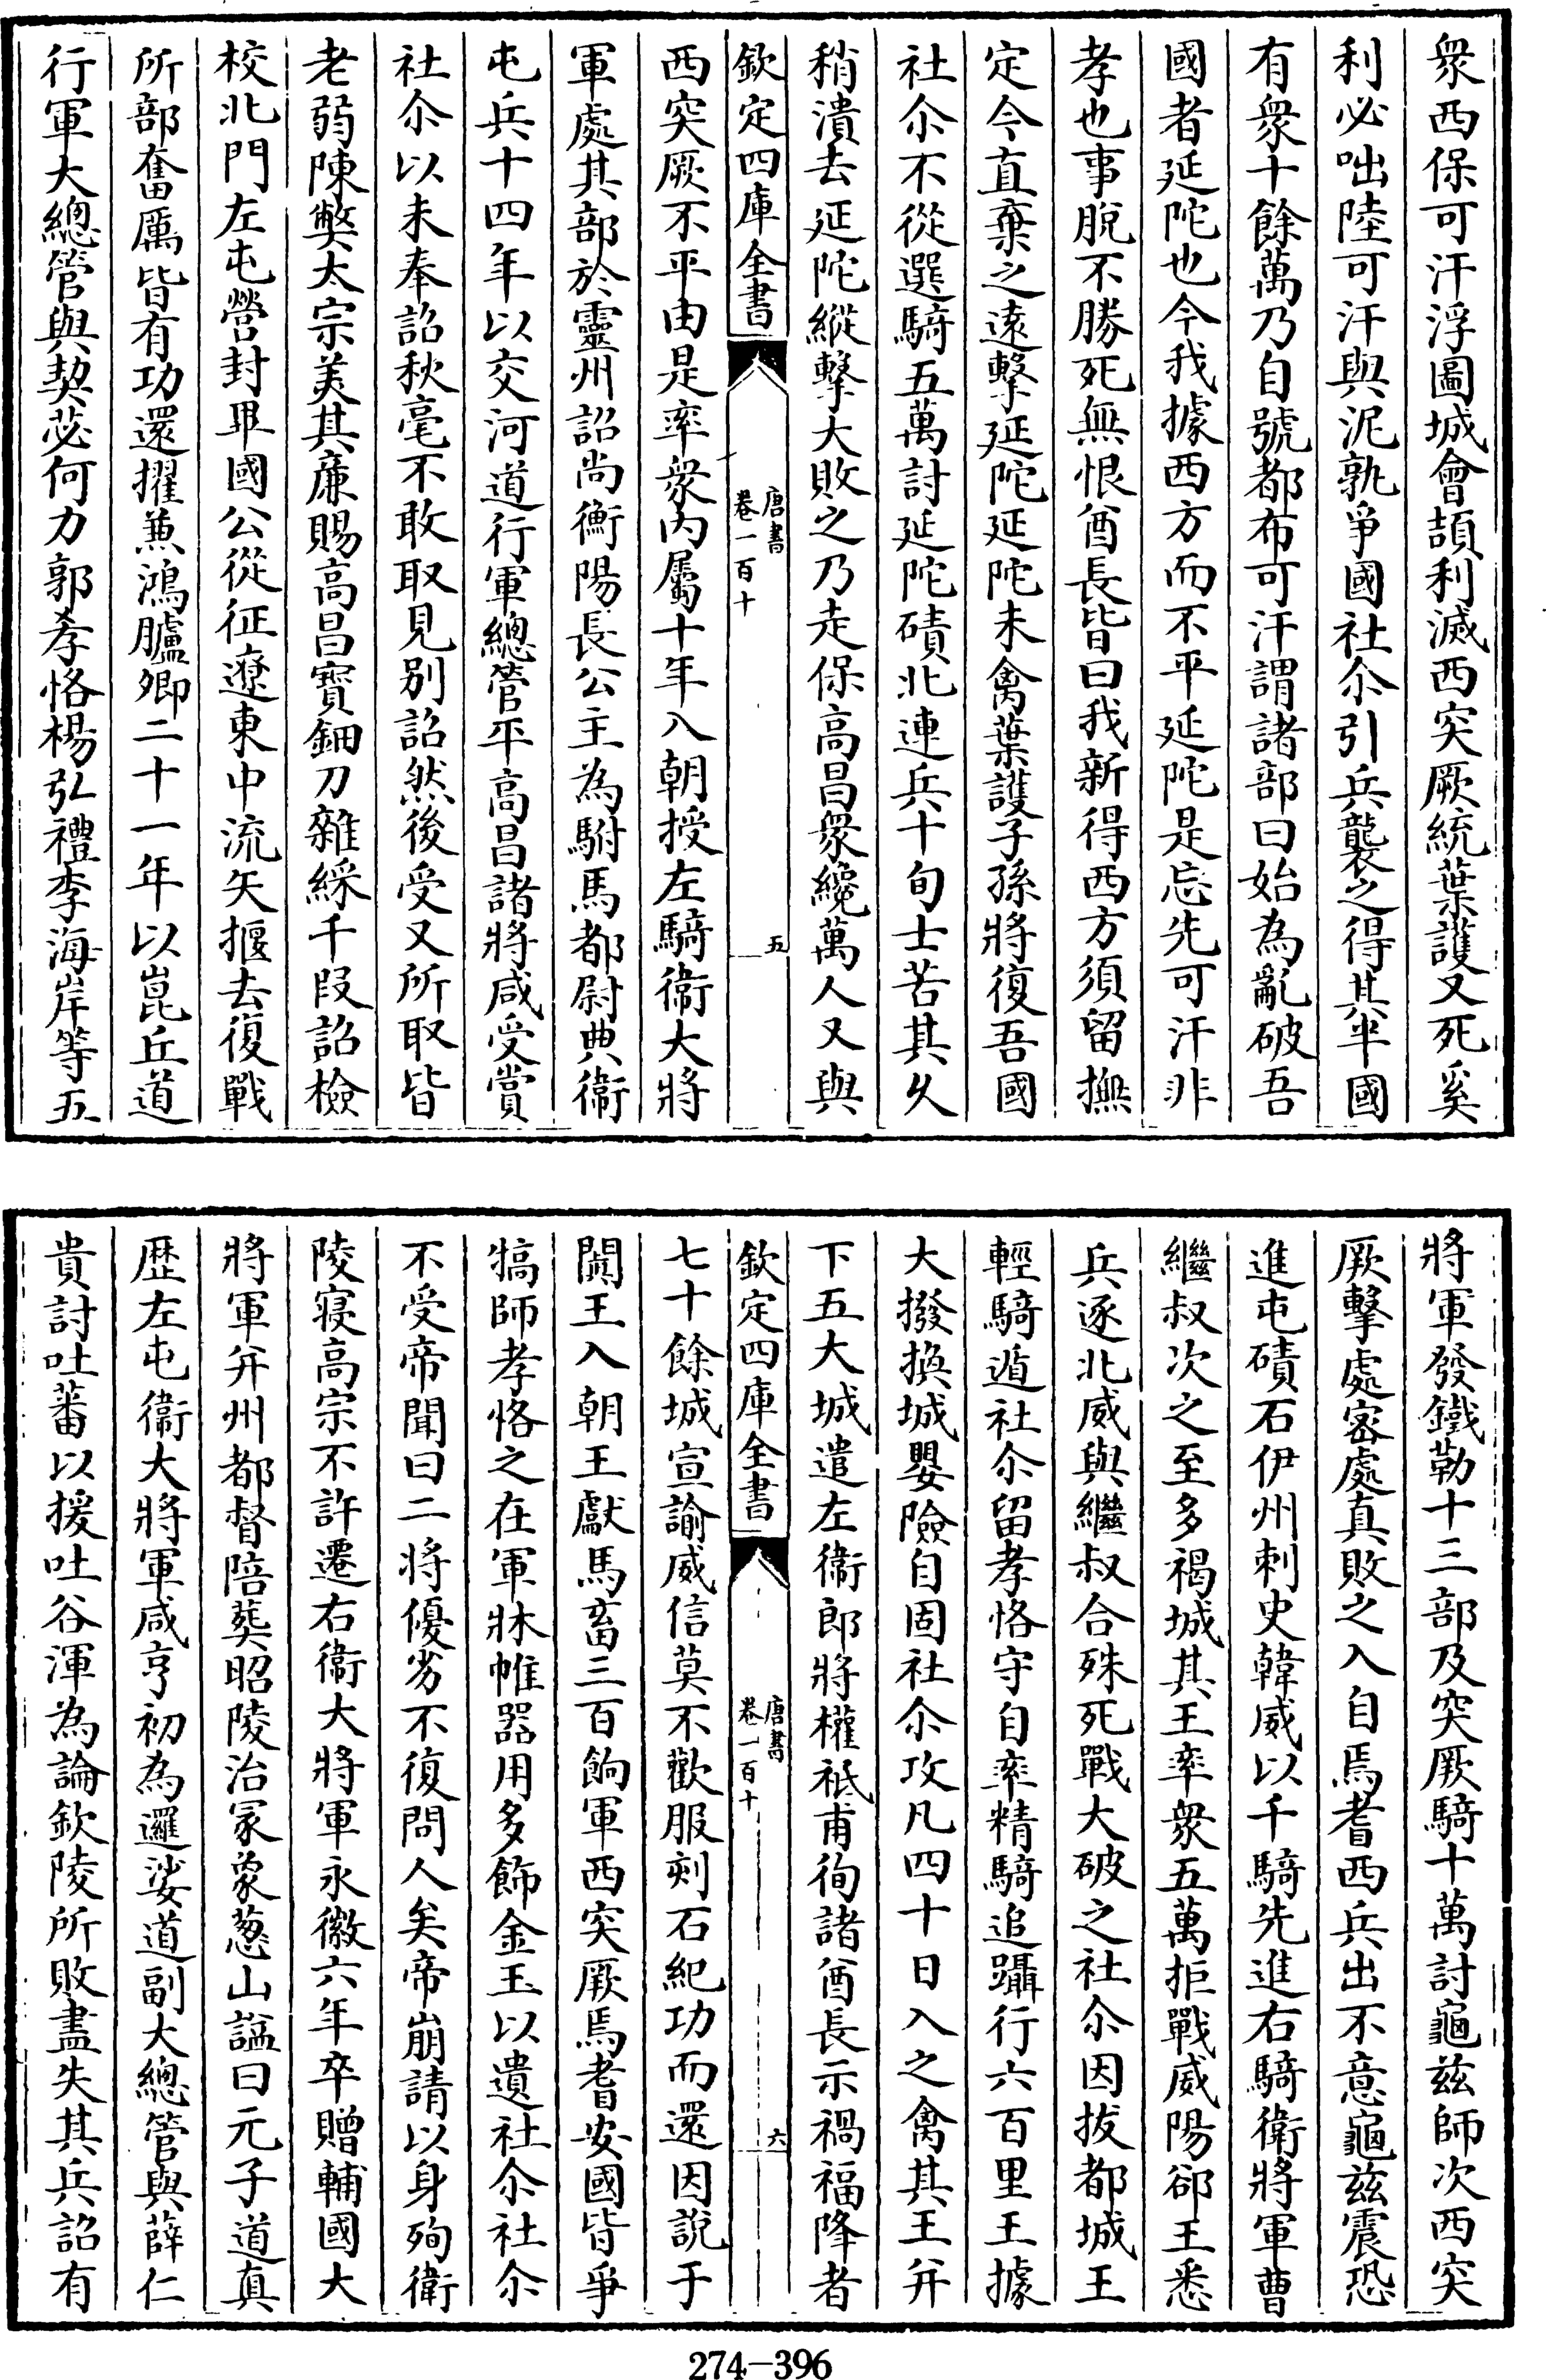 衆西保可汗浮圖城會頡利滅西突厥統葉護又死奚
利必咄陸可汗與泥孰爭國社尒引兵襲之得其半國
有衆十餘萬乃自號都布可汗謂諸部曰始為亂破吾
國者延陀也今我據西方而不平延陀是忘先可汗非
孝也事脫不勝死無恨酋長皆曰我新得西方須留撫
定今直棄之遠擊延陀延陀未禽葉護子孫將復吾國
社尒不從選騎五萬討延陀磧北連兵十旬士苦其久
稍潰去延陀縱擊大敗之乃走保高昌衆纔萬人又與
欽定四庫全書
唐書
卷一百十
五
西突厥不平由是率衆内屬十年入朝授左騎衛大將
軍處其部於靈州詔尚衡陽長公主為駙馬都尉典衛
屯兵十四年以交河道行軍總管平高昌諸將咸受賞
社尒以未奉詔秋毫不敢取見别詔然後受又所取皆
老弱陳獘太宗美其廉賜高昌寳鈿刀雜綵千段詔檢
校北門左屯營封畢國公從征遼東中流矢揠去復戰
所部奮厲皆有功還擢兼鴻臚卿二十一年以崑丘道
行軍大總管與契苾何力郭孝恪楊弘禮李海岸等五
將軍發鐵勒十三部及突厥騎十萬討龜兹師次西突
厥擊處宻處真敗之入自焉耆西兵出不意龜兹震恐
進屯磧石伊州刺史韓威以千騎先進右騎衛將軍曹
繼叔次之至多褐城其王率衆五萬拒戰威陽郤王悉
兵逐北威與繼叔合殊死戰大破之社尒因拔都城王
輕騎遁社尒留孝恪守自率精騎追躡行六百里王據
大撥換城嬰險自固社尒攻凡四十日入之禽其王并
下五大城遣左衛郎將權祗甫徇諸酋長示禍福降者
欽定四庫全書
唐書
卷一百十
六
七十餘城宣諭威信莫不歡服刻石紀功而還因說于
闐王入朝王獻馬畜三百餉軍西突厥焉耆安國皆爭
犒師孝恪之在軍牀帷器用多飾金玉以遺社尒社尒
不受帝聞曰二將優劣不復問人矣帝崩請以身殉衛
陵寢高宗不許遷右衛大將軍永徽六年卒贈輔國大
將軍并州都督陪葬昭陵治冢象葱山諡曰元子道真
歴左屯衛大將軍咸亨初為邏娑道副大總管與薛仁
貴討吐蕃以援吐谷渾為論欽陵所敗盡失其兵詔有
274-396